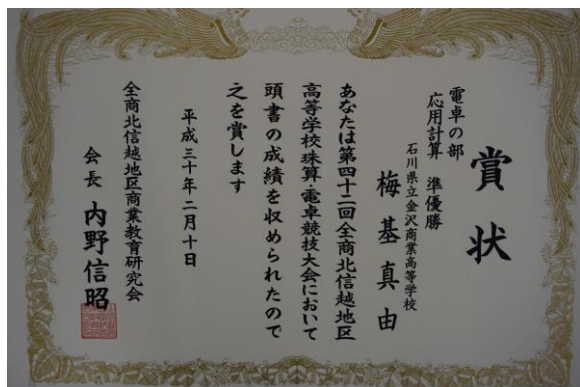 賞状
電卓の部
応用計算 準優勝
石川県立金沢商業高等学校
梅基真由
あなたは第四十二回全商北信越地区
高等学校珠算・電卓競技大会において
頭書の成績を収められたので
之を賞します
平成三十年二月十日
全商北信越地区商業教育研究会
会長 内野信昭